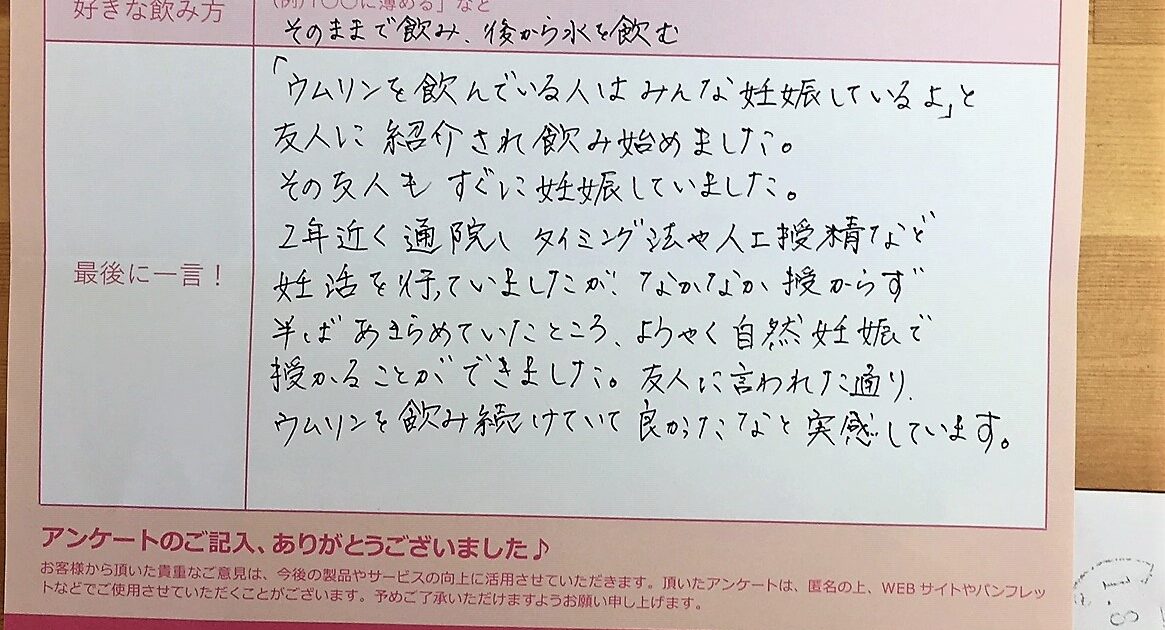 好きな飲み方
(例)「〇〇に薄める」など
そのままで飲み、後から水を飲む
「ウムリンを飲んでいる人はみんな妊娠しているよ」と
友人に紹介され飲み始めました。
その友人もすぐに妊娠していました。
2年近く通院しタイミング法や人工授精など
妊活を行っていましたが、なかなか授からず
半ばあきらめていたところ、ようやく自然妊娠で
授かることができました。友人に言われた通り、
ウムリンを飲み続けていて良かったなと実感しています。
最後に一言!
アンケートのご記入、ありがとうございました♪
お客様から頂いた貴重なご意見は、今後の製品やサービスの向上に活用させていただきます。頂いたアンケートは、匿名の上、WEBサイトやパンフレッ
トなどでご使用させていただくことがございます。予めご了承いただけますようお願い申し上げます。